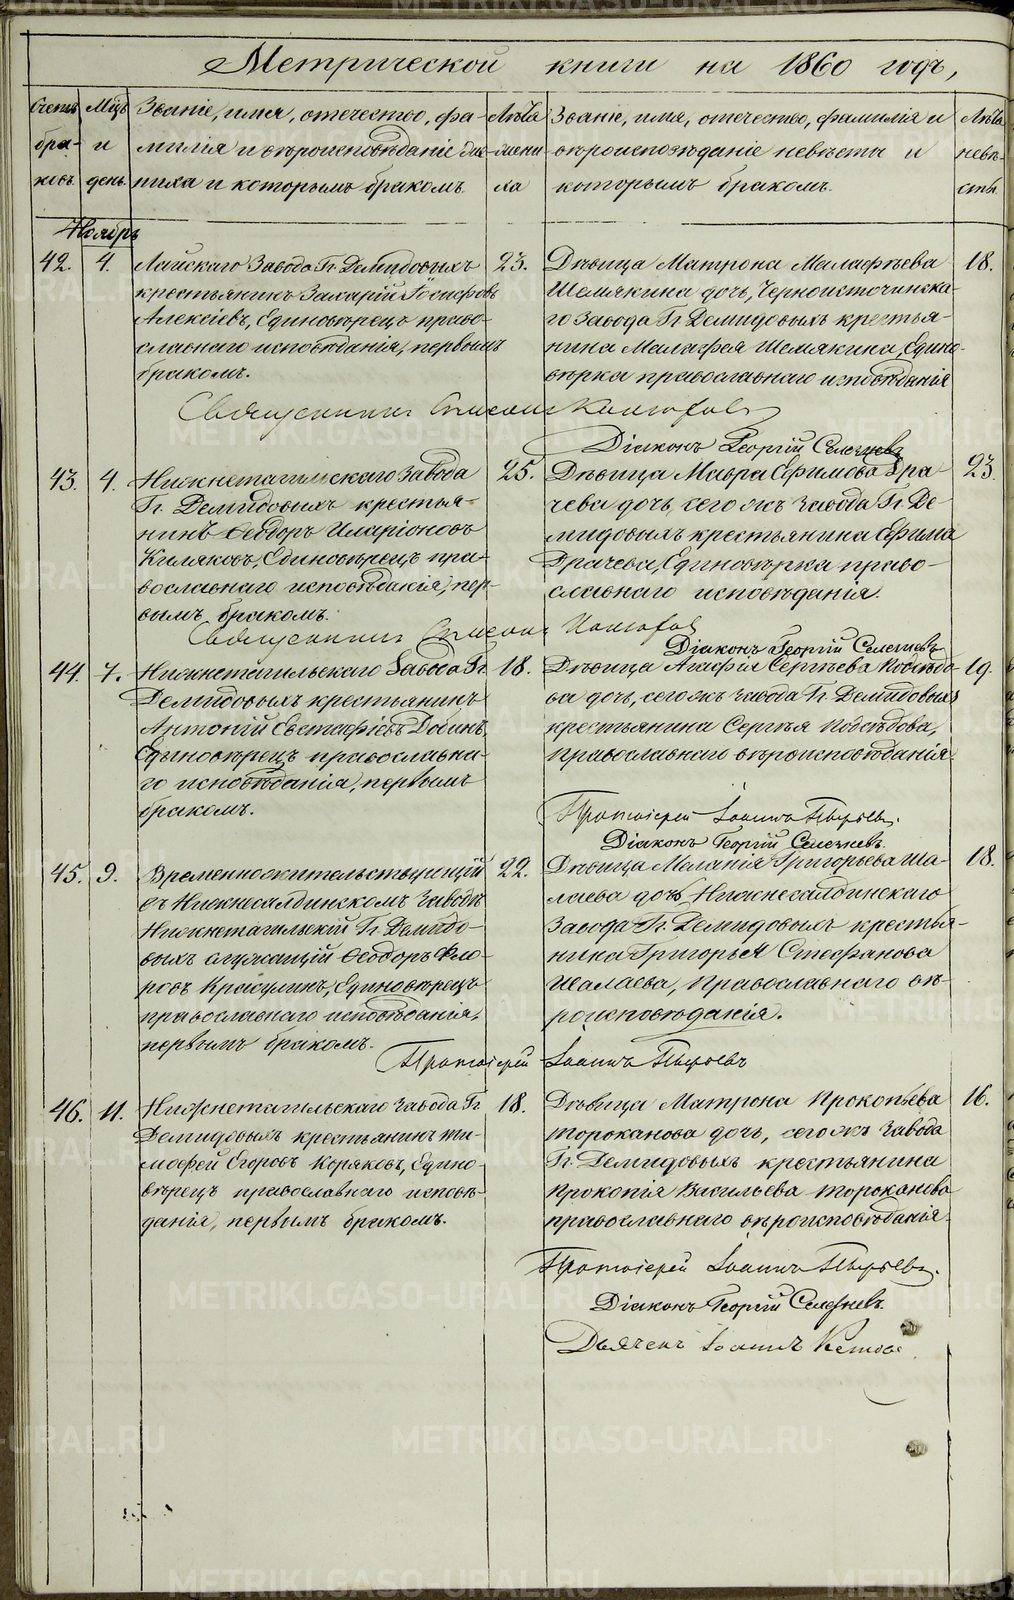 Метрической книги на 1860 годъ,
Счетъ браковъ.
Мѣцъ и день.
Званіе, имя, отечество, фа-
милія и вѣроисповѣданіе же-
ниха и которымъ бракомъ.
Лѣта
жени
ха
Званіе, имя, отечество, фамилія и
вѣроисповѣданіе невѣсты и
которымъ бракомъ.
Лѣта
невѣ-
сты.
Ноябрь
42. 4.
Лайскаго Завода Гг. Демидовыхъ
крестьянинъ Захарій Іосифовъ
Алексіевъ, Единовѣрецъ право-
славнаго исповѣданія, первымъ
бракомъ.
23.
Дѣвица Матрона Малафѣева
Шемякина дочь, Черноисточинска-
го Завода Гг. Демидовыхъ крестья-
нина Малафея Шемякина, Едино-
вѣрка православнаго исповѣданія
18.
Священникъ
Діаконъ Георгій Селезневъ
43. 4.
Нижнетагильскаго Завода
Гг. Демидовыхъ крестья-
нинъ Ѳеодоръ Иларіоновъ
Киляковъ, Единовѣрецъ пра-
вославнаго исповѣданія, пер-
вымъ бракомъ.
25.
Дѣвица Мавра Ефимова Гра-
чева дочь, сегожъ Завода Гг. Де-
мидовыхъ крестьянина Ефима
Грачева, Единовѣрка право-
славнаго исповѣданія.
23
Священникъ
Діаконъ Георгій Селезневъ
44. 7.
Нижнетагильскаго Завода Гг.
Демидовыхъ крестьянинъ
Антоній Евстафіевъ
Единовѣрецъ православна-
го исповѣданія, первымъ
бракомъ.
18.
Дѣвица Агафія Сергѣева Подсѣдо-
ва дочь, сегожъ Завода Гг. Демидовыхъ
крестьянина Сергѣя Подсѣдова,
Православнаго вѣроисповѣданія
19.
Протоіерей Іоаннъ Пырьевъ.
Діаконъ Георгій Селезневъ.
45. 9.
Временножительствующій
въ Нижнесалдинскомъ Заводѣ
Нижнетагильскій Гг. Демидо-
выхъ служащій Ѳеодоръ Фло-
ровъ Красулинъ, Единовѣрецъ
православнаго исповѣданія,
первымъ бракомъ.
22.
Дѣвица Меланія Григорьева Ша-
лаева дочь, Нижнесалдинскаго
Завода Гг. Демидовыхъ крестья-
нина Григорья Стефанова
Шалаева, Православнаго вѣ-
роисповѣданія.
18.
Протоіерей Іоаннъ Пырьевъ
46. 11.
Нижнетагильскаго Завода Гг.
Демидовыхъ крестьянинъ Ти-
моѳей Егоровъ Коряковъ, Едино-
вѣрецъ православнаго исповѣ-
данія, первымъ бракомъ.
18.
Дѣвица Матрона Прокопьева
Тороканова дочь, сегожъ Завода
Гг. Демидовыхъ крестьянина
Прокопія Васильева Тороканова
православнаго вѣроисповѣданія.
16.
Протоіерей Іоаннъ Пырьевъ.
Діаконъ Георгій Селезневъ.
Дьячекъ Іоаннъ
METRIKI.GASO-URAL.RU